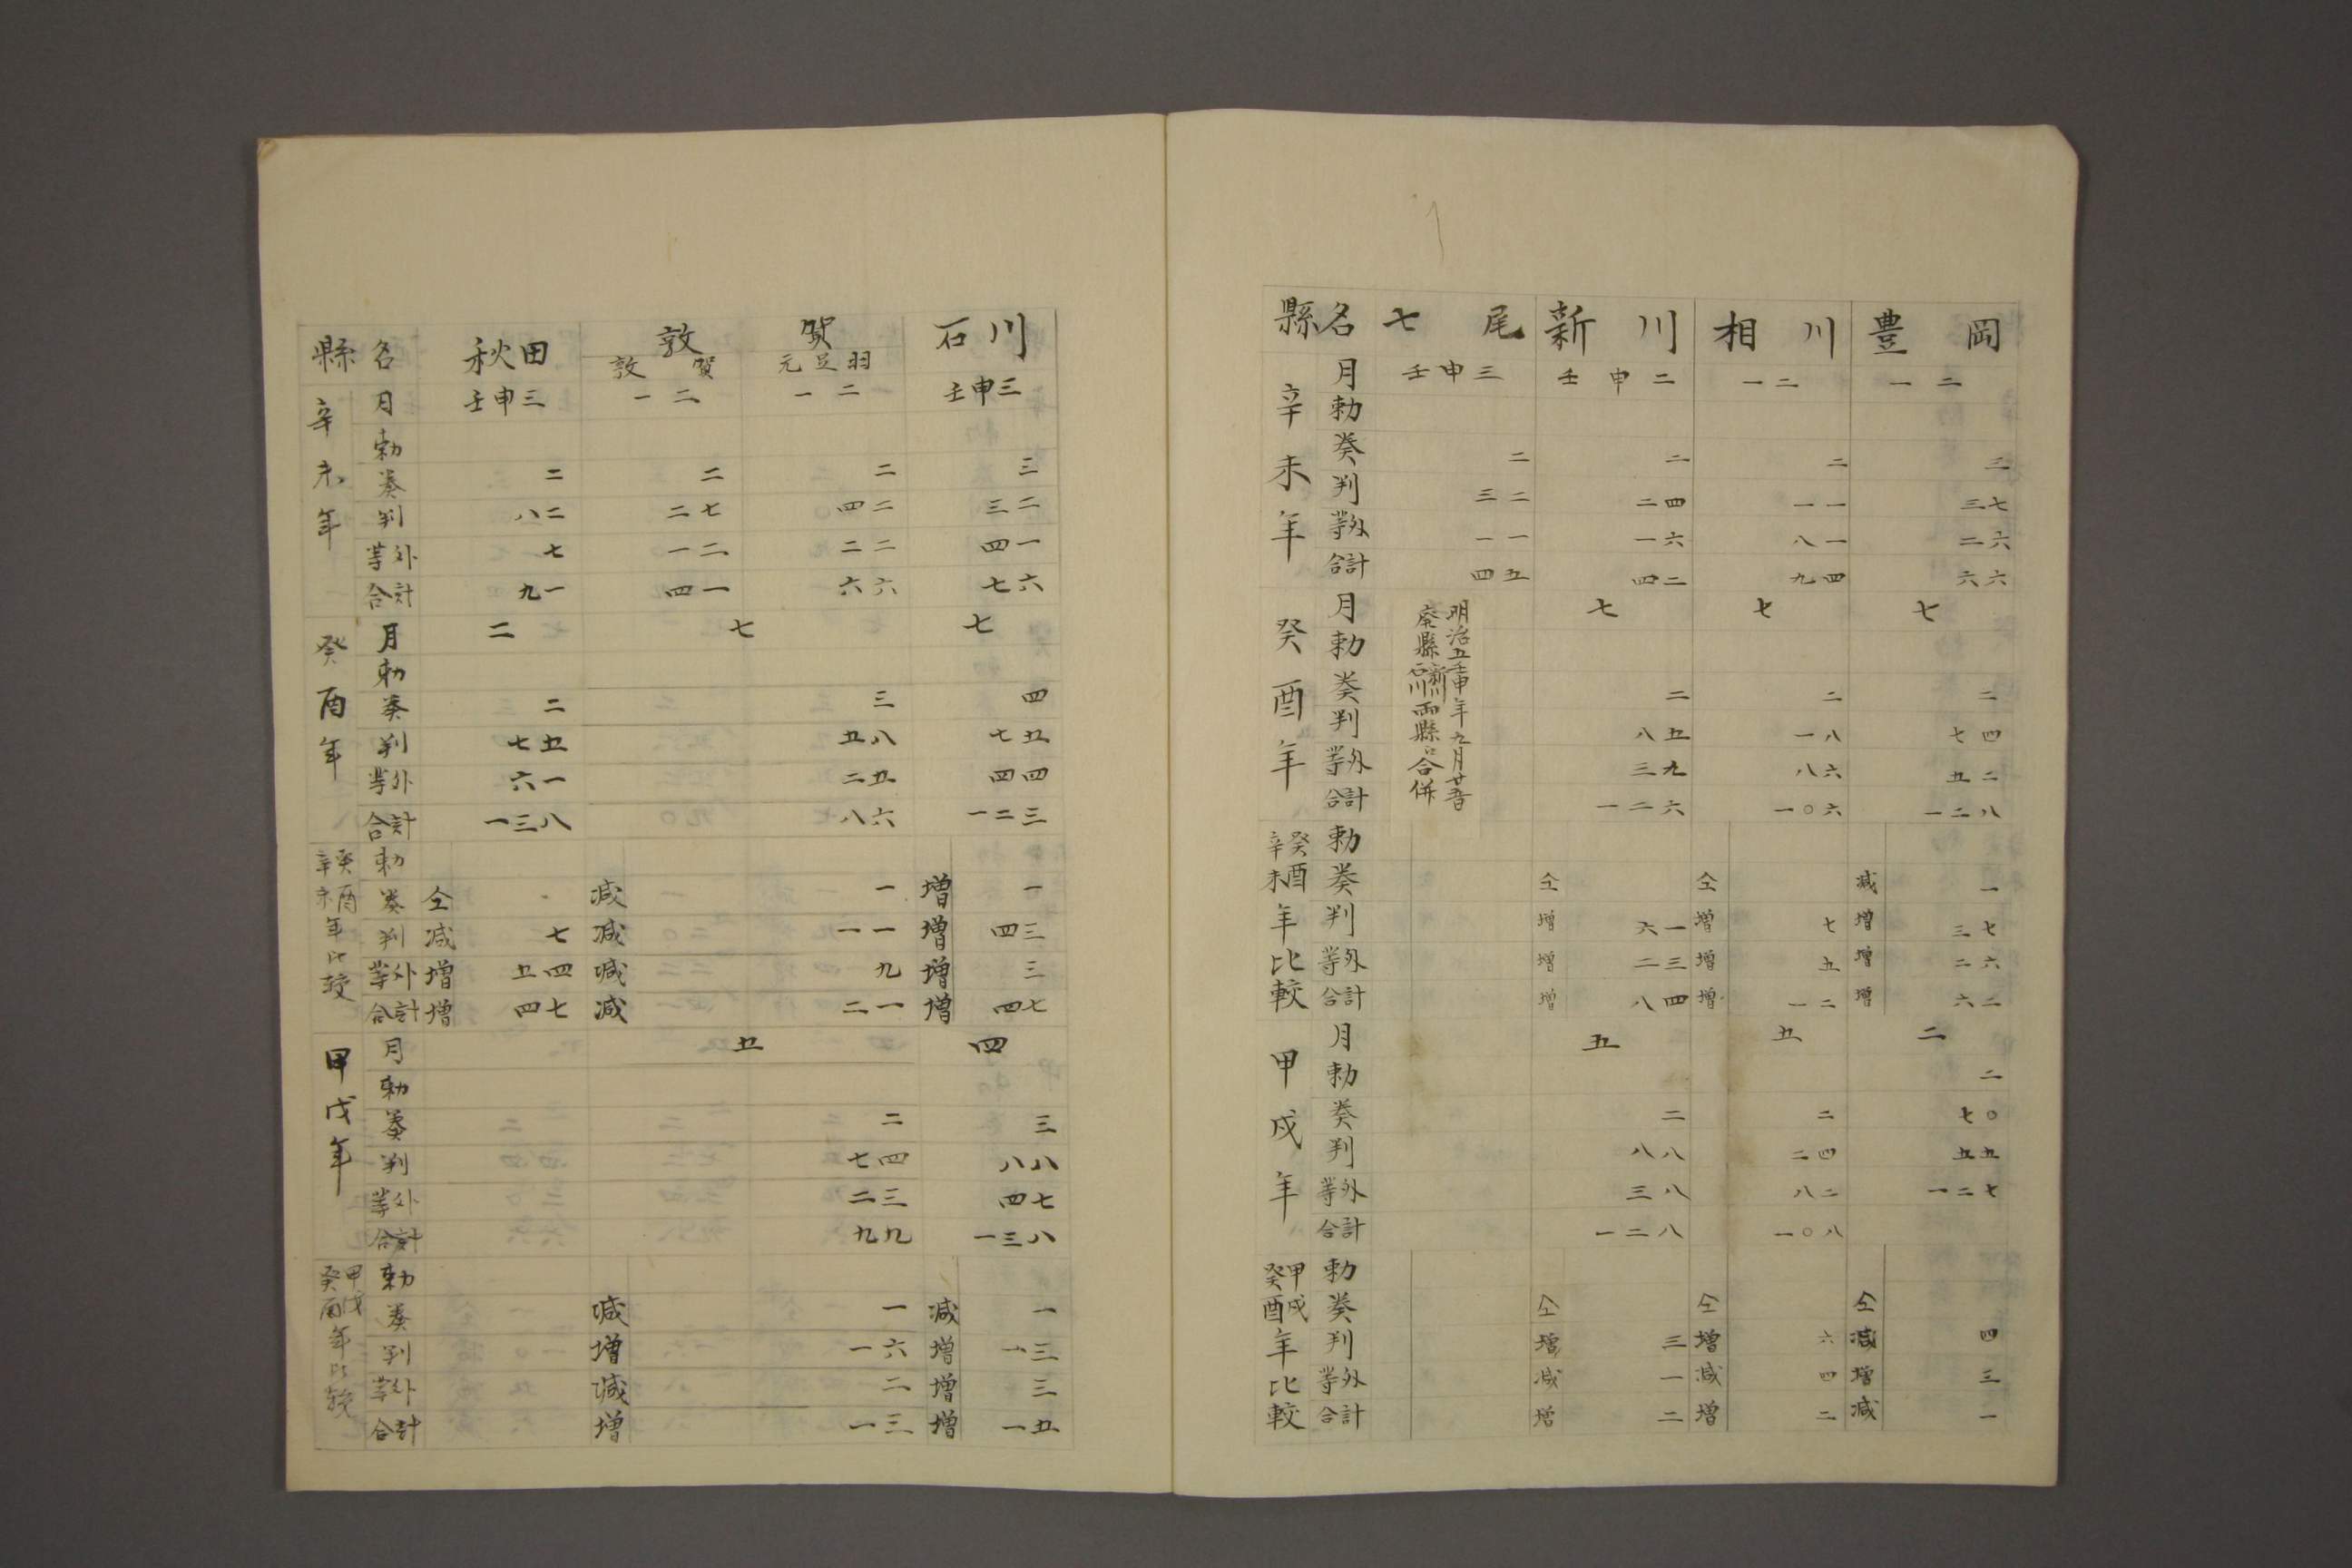 縣名 七尾 新川 相川 豊岡
辛未年
月 壬申三 壬申二 一二 一二
勅
奏 二 二 二 三
判 三二 二四 一一 三七
等外 一一 一六 八一 二六
合計 四五 四二 九四 六六
癸酉年
明治五壬申年九月廿五日
廃縣新川石川両縣ニ合併
月 七 七 七
勅
奏 二 二 二
判 八五 一八 七四
等外 三九 八六 五二
合計 一二六 一〇六 一二八
癸酉辛未年比較
勅
奏 仝 仝 減 一
判 増 六一 増 七 増 三七
等外 増 二三 増 五 増 二六
合計 増 八四 増 一二 増 六二
甲戌年
月 五 五 二
勅 二
奏 二 二 七〇
判 八八 二四 五五
等外 三八 八二 一二七
合計 一二八 一〇八
甲戌癸酉年比較
勅
奏 仝 仝 仝
判 増 三 増 六 減 四
等外 減 一 減 四 増 三
合計 増 二 増 二 減 一
縣名 秋田 敦賀 石川
敦賀 元足羽
辛未年
月 壬申三 一二 一二 壬申三
勅
奏 二 二 二 三
判 八二 二七 四二 三二
等外 七 一二 二二 四一
合計 九一 四一 六六 七六
癸酉年
月 二 七 七
勅
奏 二 三 四
判 七五 五八 七五
等外 六一 二五 四四
合計 一三八 八六 一二三
癸酉辛未年比較
勅
奏 仝 減 一 増 一
判 減 七 減 一一 増 四三
等外 増 五四 減 九 増 三
合計 増 四七 減 二一 増 四七
甲戌年
月 五 四
勅
奏 二 三
判 七四 八八
等外 二三 四七
合計 九九 一三八
甲戌癸酉年比較
勅
奏 減 一 減 一
判 増 一六 増 一三
等外 減 二 増 三
合計 増 一三 増 一五